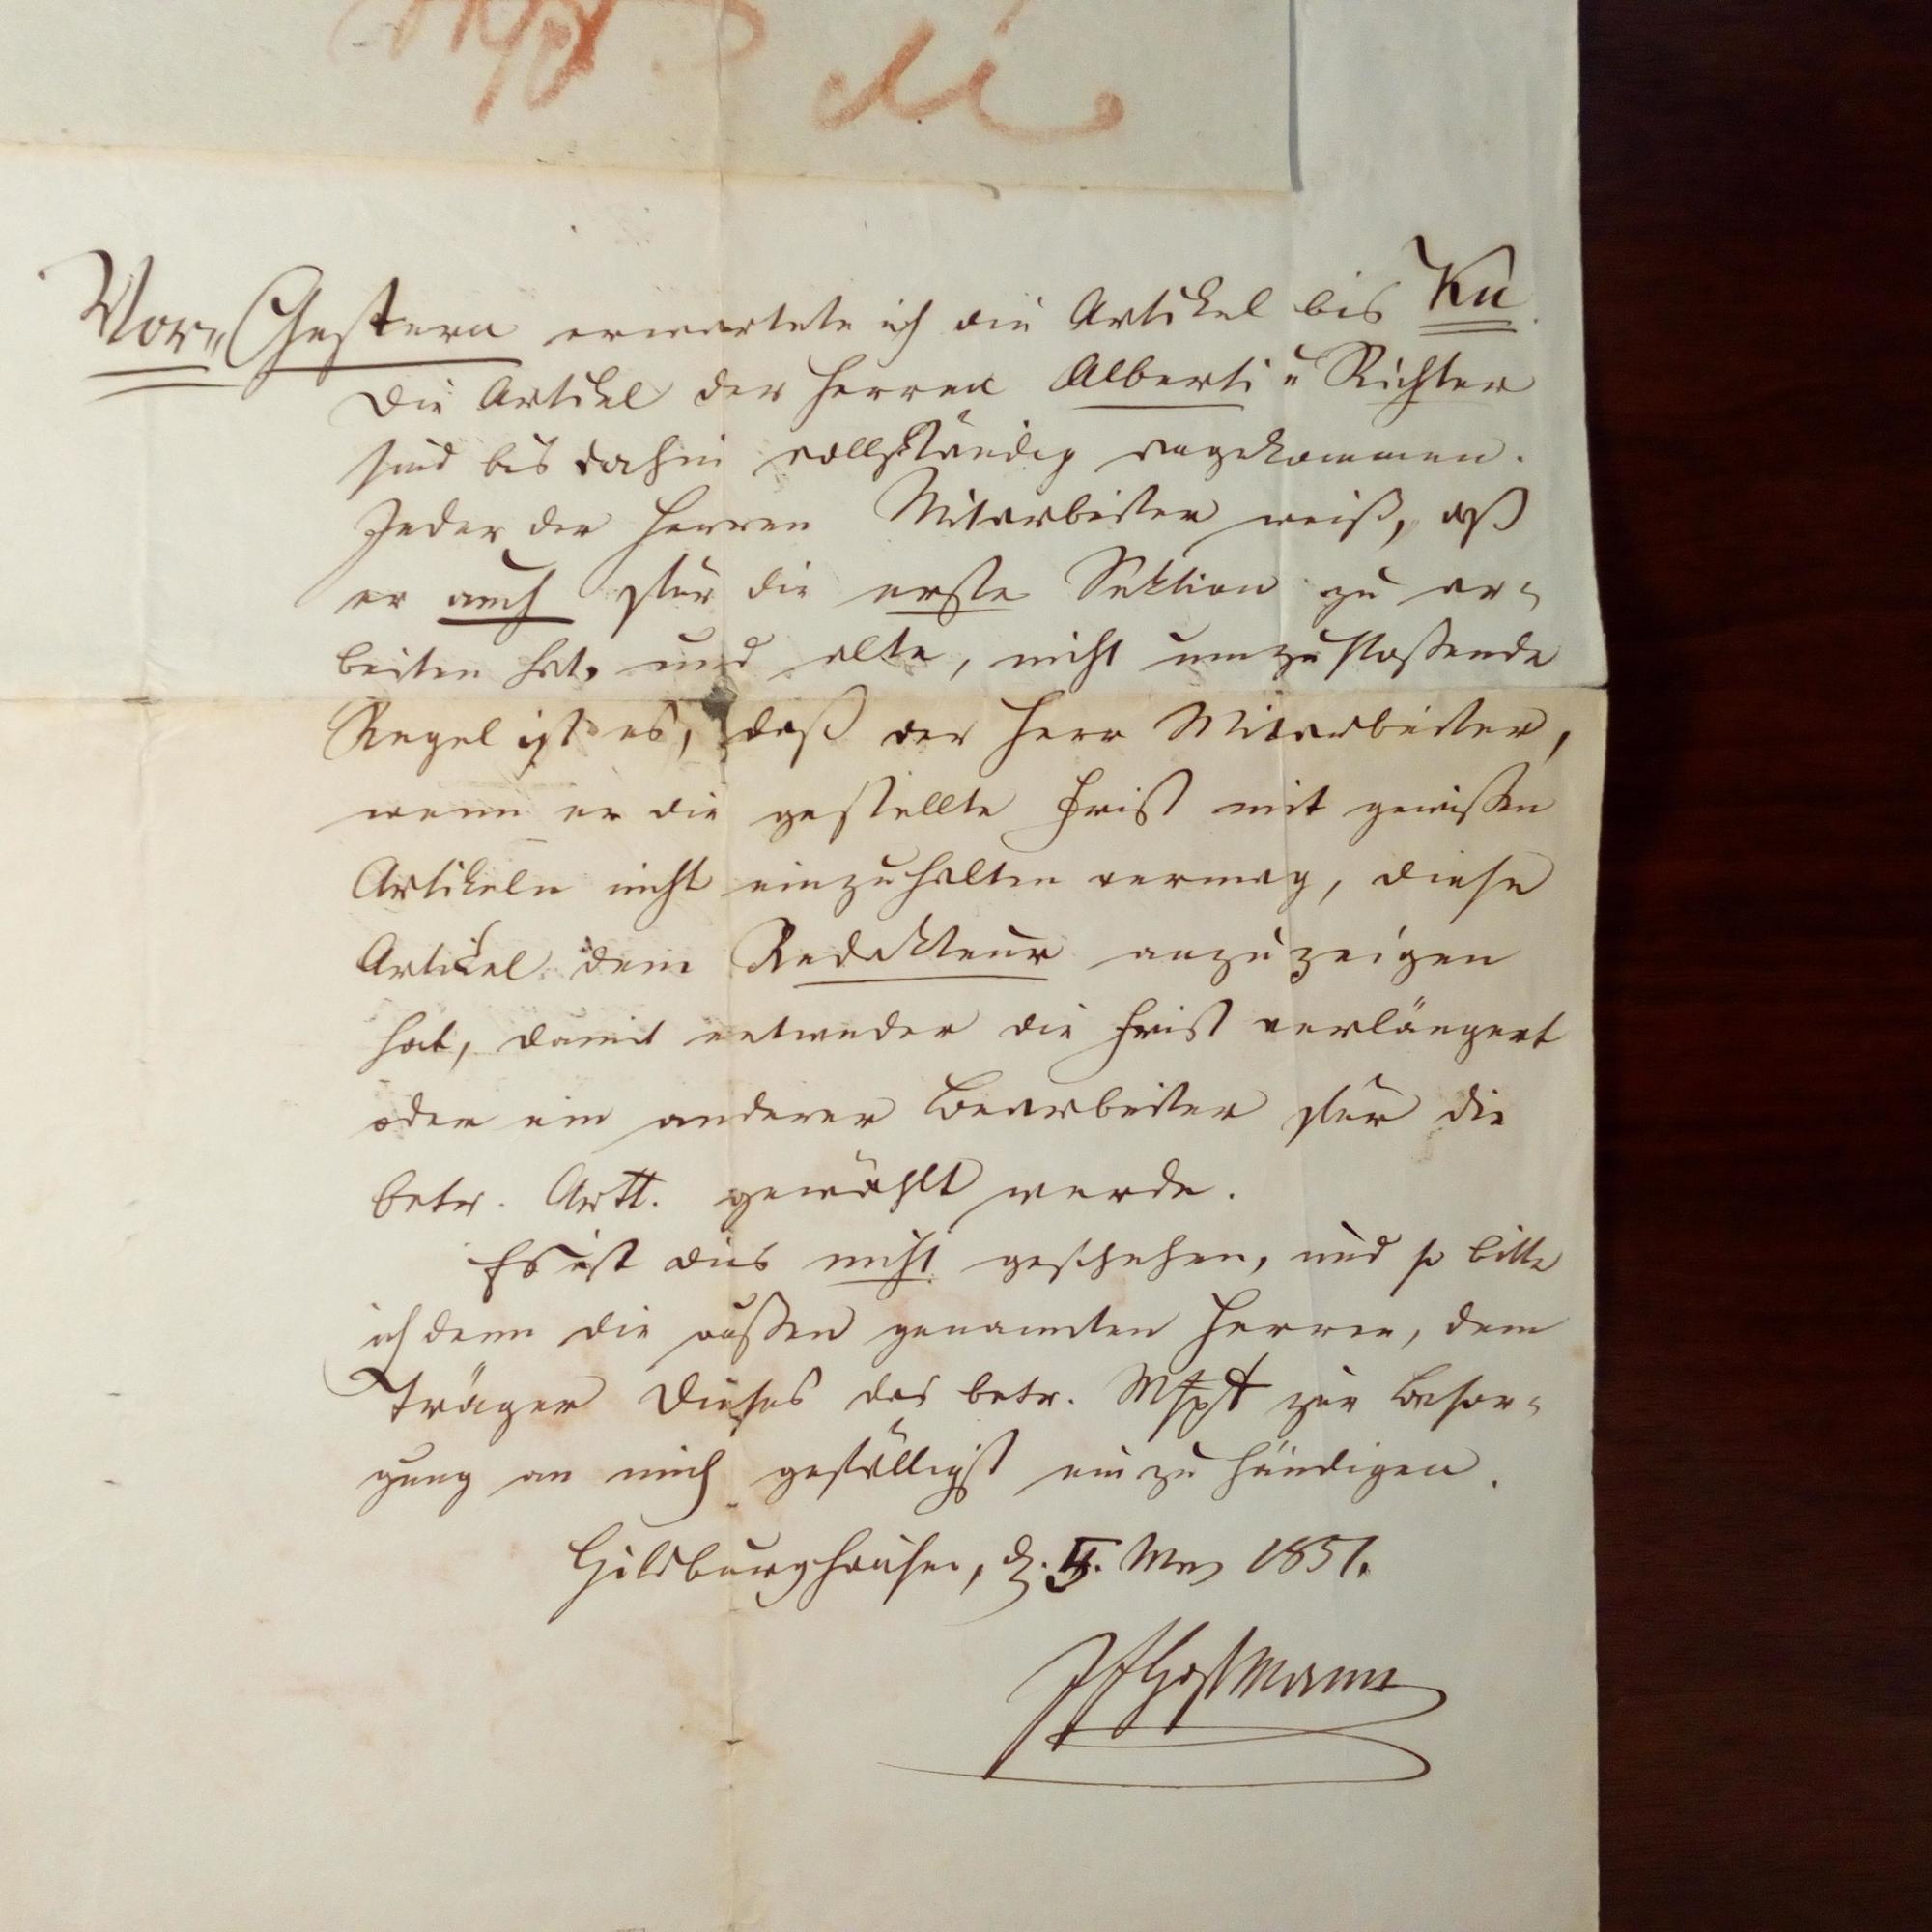 Vor-Gestern erwartete ich die Artikel bis Ku.
Die Artikel der Herren Alberti u Richter
sind bis dahin vollständig angekommen.
Jeder der Herren Mitarbeiter weiß, daß
er auch für die erste Sektion zu ar-
beiten hat, und alte, nicht umzustoßende
Regel ist es, daß der Herr Mitarbeiter,
wenn er die gestellte Frist mit gewissen
Artikeln nicht einzuhalten vermag, diese
Artikel dem Redakteur anzuzeigen
hat, damit entweder die Frist verlängert
oder ein anderer Bearbeiter für die
betr. Artt. gewählt werde.
Es ist dies nicht geschehen, und so bitte
ich denn die außen genannten Herren, dem
Träger Dieses das betr. Mspt zur Besor-
gung an mich gefälligst einzuhändigen.
Hildburghausen, d. Mrz 1851.
JfHoffmann